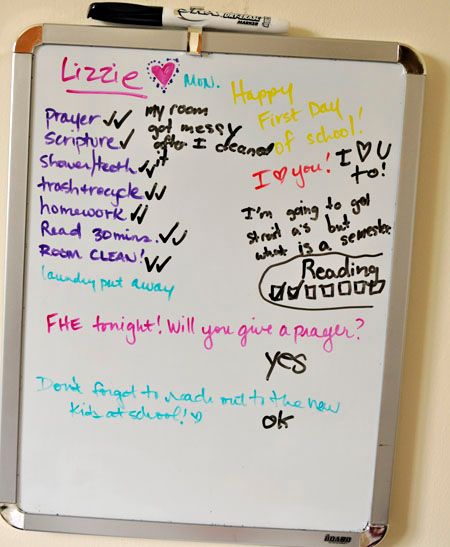 DRY-ERASE
MARKER
Lizzie
MON.
Happy
First Day
of school!
I ♥ you!
I ♥ U
to!
prayer ✓✓
scripture ✓
shower/teeth ✓✓
trash+recycle ✓✓
homework ✓✓
Read 30mins. ✓✓
ROOM CLEAN! ✓✓
laundry put away
my room
got messy
after I cleaned
it
I'm going to get
strait a's but
what is a semester
Reading
FHE tonight! Will you give a prayer?
yes
Don't forget to reach out to the new
kids at school! ♡
ok
THE BOARD